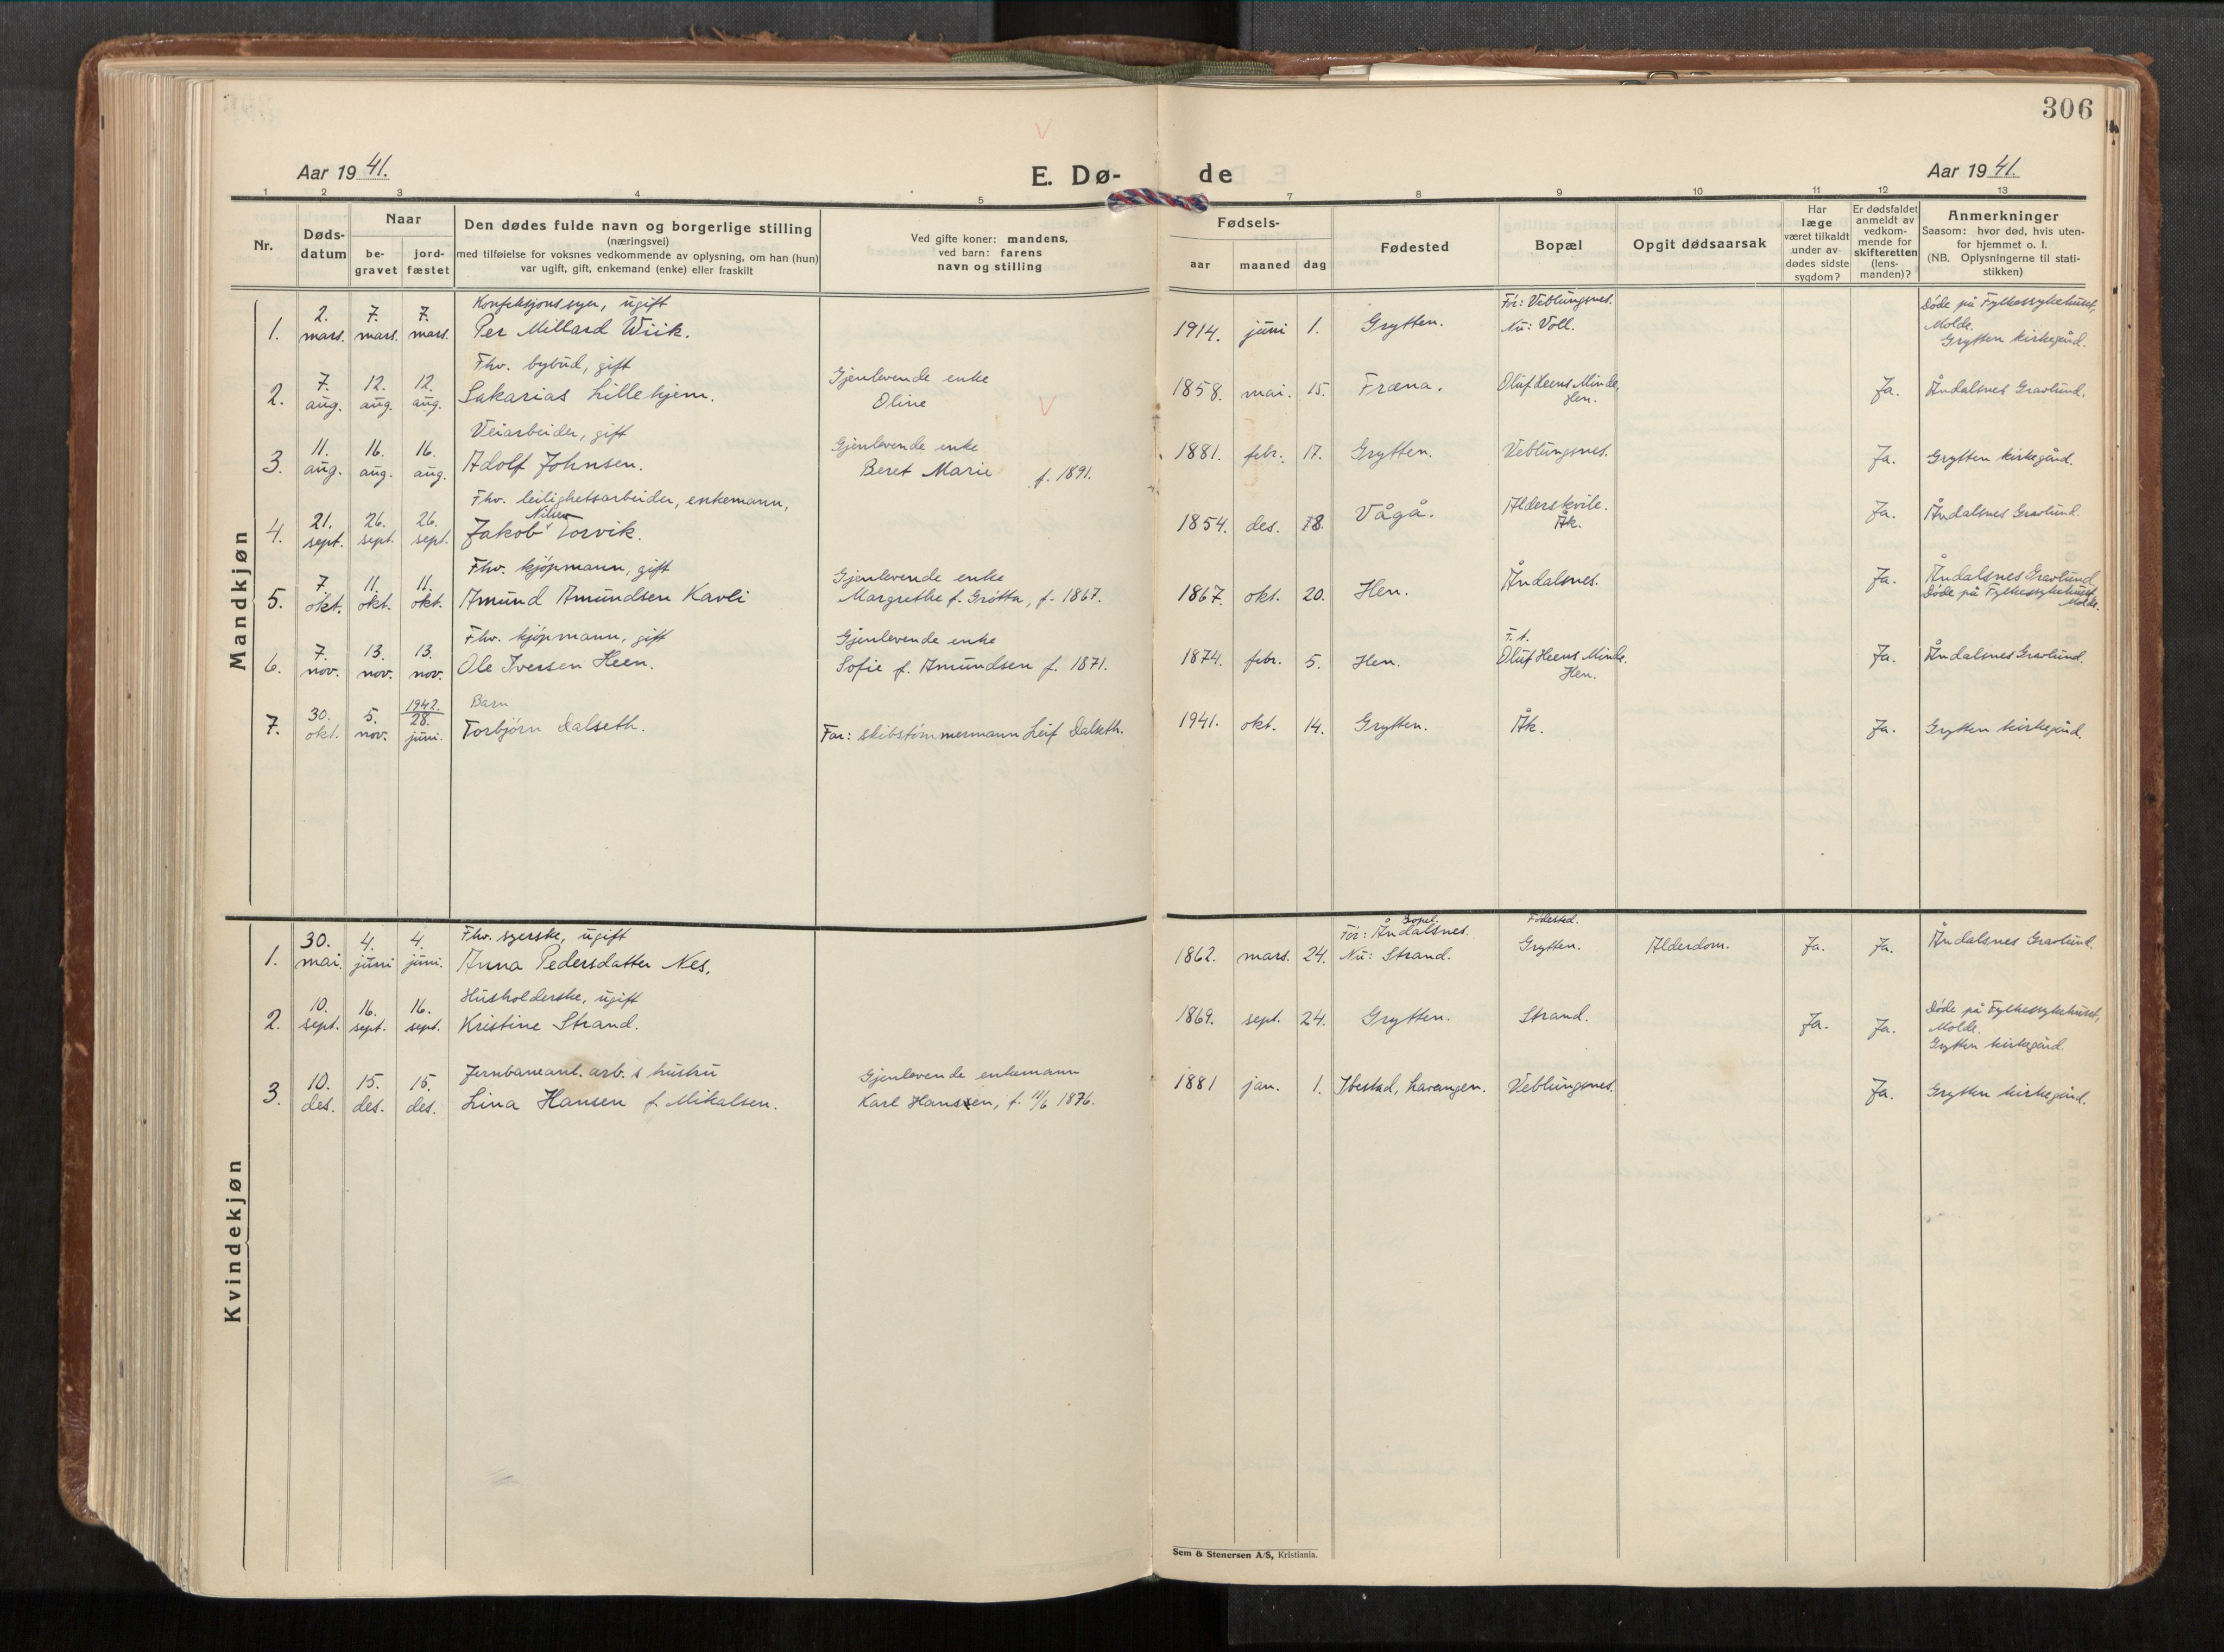 306
Aar 1941.
E. Dø-
de
Aar 1941.
1 2 3 4 5 7 8 9 10 11 12 13
Nr.
Døds-
datum
Naar
be-
gravet
jord-
fæstet
Den dødes fulde navn og borgerlige stilling
(næringsvei)
med tilføielse for voksnes vedkommende av oplysning, om han (hun)
var ugift, gift, enkemand (enke) eller fraskilt
Ved gifte koner: mandens,
ved barn: farens
navn og stilling
Fødsels-
aar maaned dag
Fødested
Bopæl
Opgit dødsaarsak
Har
læge
været tilkaldt
under av-
dødes sidste
sygdom?
Er dødsfaldet
anmeldt av
vedkom-
mende for
skifteretten
(lens-
manden)?
Anmerkninger
Saasom: hvor død, hvis uten-
for hjemmet o. l.
(NB. Oplysningerne til stati-
stikken)
Mandkjøn
Konfeksjonssyer, ugift
1. 2. mars. 7. mars. 7. mars. Per Millard Wiik.
1914. juni 1. Grytten.
Før: Veblungsnes.
Nu: Voll.
Døde på Fylkessykehuset,
Molde.
Grytten kirkegård.
Fhv. bybud, gift
2. 7. aug. 12. aug. 12. aug. Sakarias Lillehjem.
Gjenlevende enke
Oline
1858. mai. 15. Fræna.
Oluf Heens Minde,
Hen.
Ja. Åndalsnes Gravlund.
Veiarbeider, gift
3. 11. aug. 16. aug. 16. aug. Adolf Johnsen.
Gjenlevende enke
Beret Marie f. 1891.
1881. febr. 17. Grytten. Veblungsnes. Ja. Grytten kirkegård.
Fhv. leilighetsarbeider, enkemann,
4. 21. sept. 26. sept. 26. sept. Jakob Nilsen Torvik.
1854. des. 18. Vågå.
Alderskvile.
Åk.
Ja. Åndalsnes Gravlund.
Fhv. kjøpmann, gift
5. 7. okt. 11. okt. 11. okt. Amund Amundsen Kavli
Gjenlevende enke
Margrethe f. Grøtta, f. 1867.
1867. okt. 20. Hen. Åndalsnes. Ja.
Åndalsnes Gravlund
Døde på Fylkessykehuset
Molde.
Fhv. kjøpmann, gift
6. 7. nov. 13. nov. 13. nov. Ole Iversen Heen.
Gjenlevende enke
Sofie f. Amundsen f. 1871.
1874. febr. 5. Hen.
F. t.
Oluf Heens Minde.
Hen.
Ja. Åndalsnes Gravlund.
Barn
7. 30. okt. 5. nov. 1942. 28. juni. Torbjørn Dalseth.
Far: skibstømmermann Leif Dalseth.
1941. okt. 14. Grytten. Åk. Ja. Grytten kirkegård.
Kvindekjøn
Fhv. syerske, ugift
1. 30. mai. 4. juni 4. juni. Anna Pedersdatter Nes.
1862. mars. 24.
Bopel.
Før: Åndalsnes.
Nu: Strand.
Fødested.
Grytten.
Alderdom. Ja. Ja. Åndalsnes Gravlund.
Husholderske, ugift
2. 10. sept. 16. sept. 16. sept. Kristine Strand.
1869. sept. 24. Grytten. Strand. Ja. Ja.
Døde på Fylkessykehuset,
Molde.
Grytten kirkegård.
Jernbaneanl. arb.s hustru
3. 10. des. 15. des. 15. des. Lina Hansen f. Mikalsen.
Gjenlevende enkemann
Karl Hansen, f. 11/6 1876.
1881 jan. 1. Ibestad, Lavangen. Veblungsnes. Ja. Grytten kirkegård.
Sem & Stenersen A/S, Kristiania.